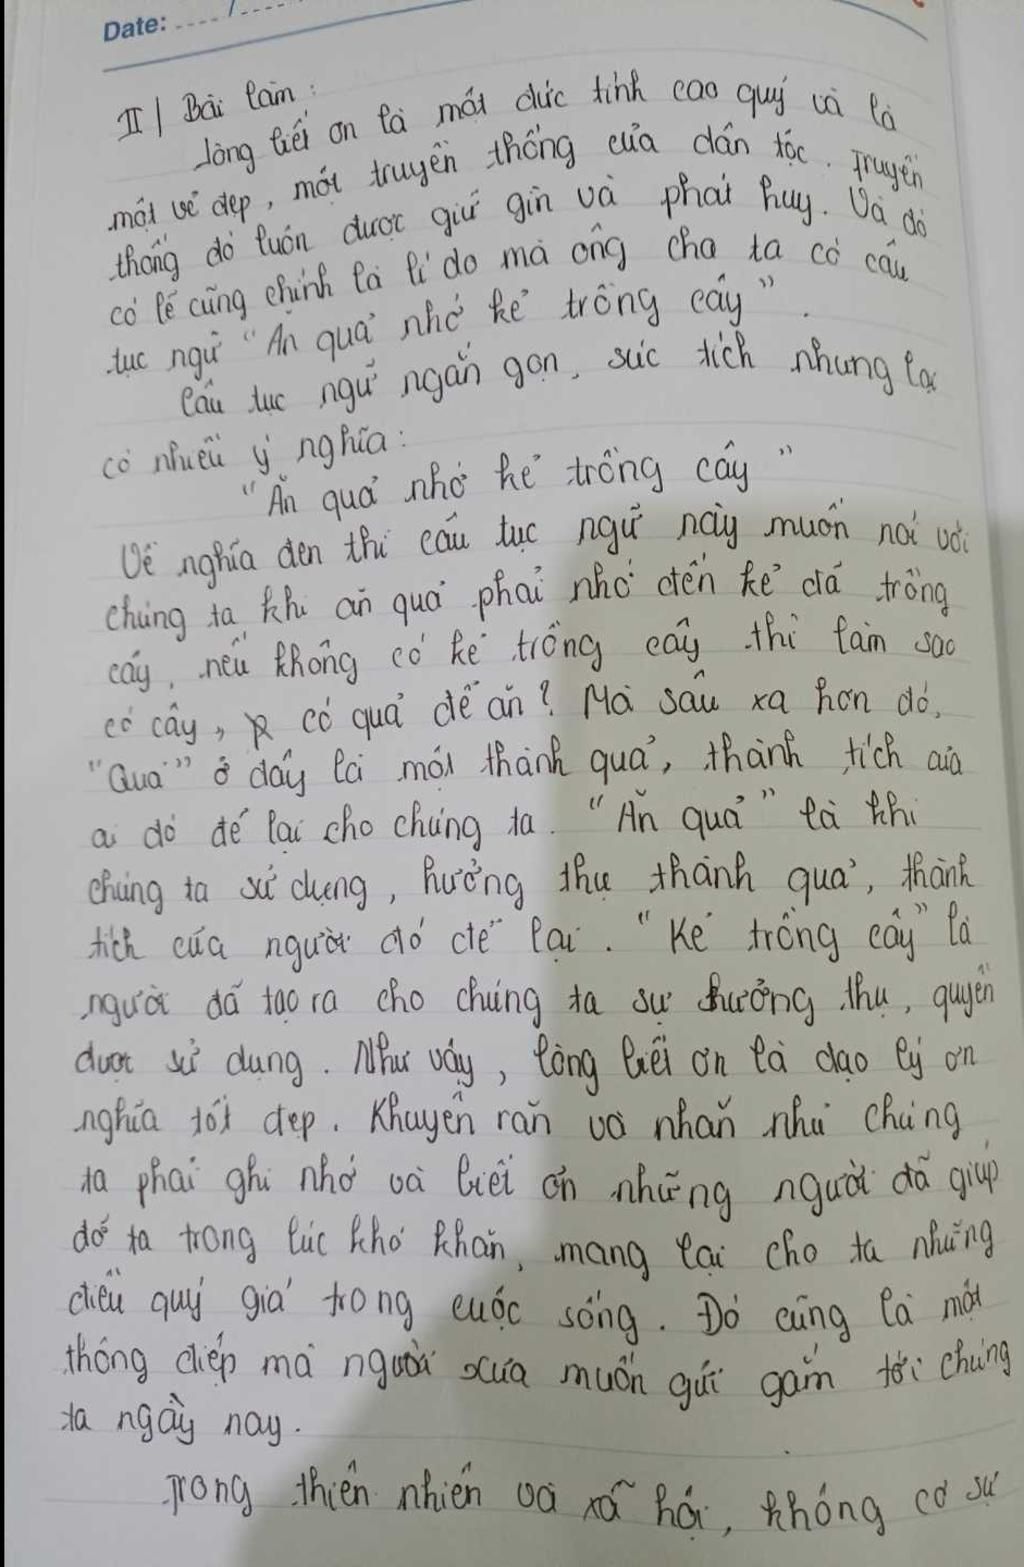 Date:
II/ Bài làm:
Lòng biết ơn là một đức tính cao quý và là
một vẻ đẹp, một truyền thống của dân tộc. Truyền
thống đó luôn được giữ gìn và phát huy. Và đó
có lẽ cũng chính là lí do mà ông cha ta có câu
tục ngữ "Ăn quả nhớ kẻ trồng cây".
Câu tục ngữ ngắn gọn, súc tích nhưng lại
có nhiều ý nghĩa:
"Ăn quả nhớ kẻ trồng cây"
Về nghĩa đen thì câu tục ngữ này muốn nói với
chúng ta khi ăn quả phải nhớ đến kẻ đã trồng
cây, nếu không có kẻ trồng cây thì làm sao
có cây, có quả để ăn? Mà sâu xa hơn đó,
"Quả" ở đây là một thành quả, thành tích của
ai đó để lại cho chúng ta. "Ăn quả" là khi
chúng ta sử dụng, hưởng thụ thành quả, thành
tích của người đó để lại. "Kẻ trồng cây" là
người đã tạo ra cho chúng ta sự hưởng thụ, quyền
được sử dụng. Như vậy, lòng biết ơn là đạo lý ơn
nghĩa tốt đẹp. Khuyên răn và nhắn nhủ chúng
ta phải ghi nhớ và biết ơn những người đã giúp
đỡ ta trong lúc khó khăn, mang lại cho ta những
điều quý giá trong cuộc sống. Đó cũng là một
thông điệp mà người xưa muốn gửi gắm tới chúng
ta ngày nay.
Trong thiên nhiên và xã hội, không có sự